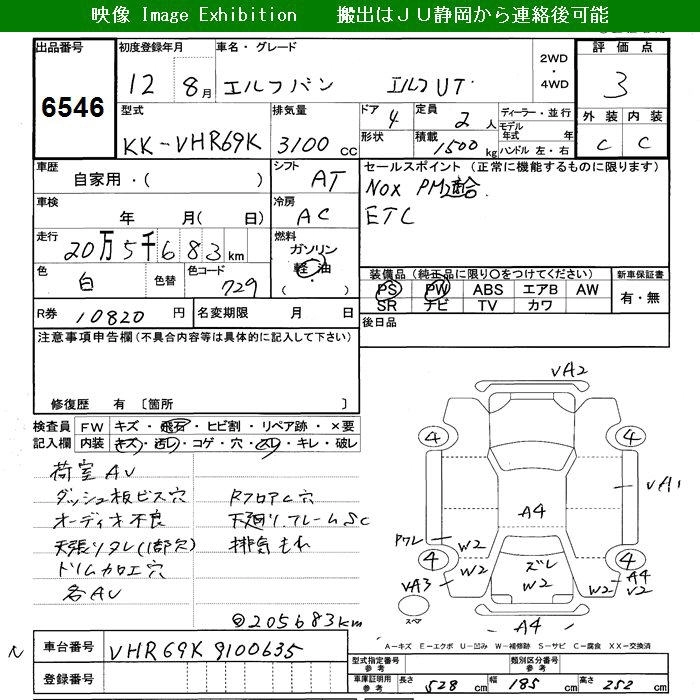 映像 Image Exhibition　搬出はＪＵ静岡から連絡後可能
出品番号 6546
初度登録年月 12 8月
車名・グレード エルフバン エルフUT
2WD・4WD
評価点 3
型式 KK-VHR69K
排気量 3100 cc
ドア 4
形状
定員 2人
積載 1500 kg
ディーラー・並行
モデル年式 年
ハンドル 左・右
外装 内装
C C
車歴 自家用・( )
シフト AT
セールスポイント (正常に機能するものに限ります)
NOX PM適合
ETC
車検 年 月( 日)
冷房 AC
走行 20万5千683km
燃料 ガソリン 軽油
( ・ )
色 白 色替
色コード 729
装備品 (純正品に限り○をつけてください)
PS PW ABS エアB AW
SR ナビ TV カワ
新車保証書 有・無
R券 10820 円
名変期限 月 日
後日品
注意事項申告欄 (不具合内容等は具体的に記入して下さい)
修復歴 有 〔箇所 〕
検査員記入欄
FW キズ・飛石・ヒビ割・リペア跡・×要
内装 キズ・汚レ・コゲ・穴・スレ・キレ・破レ
荷室AU
ダッシュ板ビス穴 RフロアC穴
オーディオ不良 下廻り.フレームSC
天張りタレ(1部欠) 排気もれ
ドリムカロエ穴
各AU
205683km
VA2
4 4
VA1
A4
ワレ
W2 W2
4 4
ズレ
W2
VA3 W2 W2 A4
V2
スペア
A4
A－キズ E－エクボ U－凹み W－補修跡 S－サビ C－腐食 XX－交換済
車台番号 VHR69K 9100635
登録番号
型式指定番号 参考
類別区分番号 参考
車庫証明用 参考 長さ 528 cm 幅 185 cm 高さ 252 cm